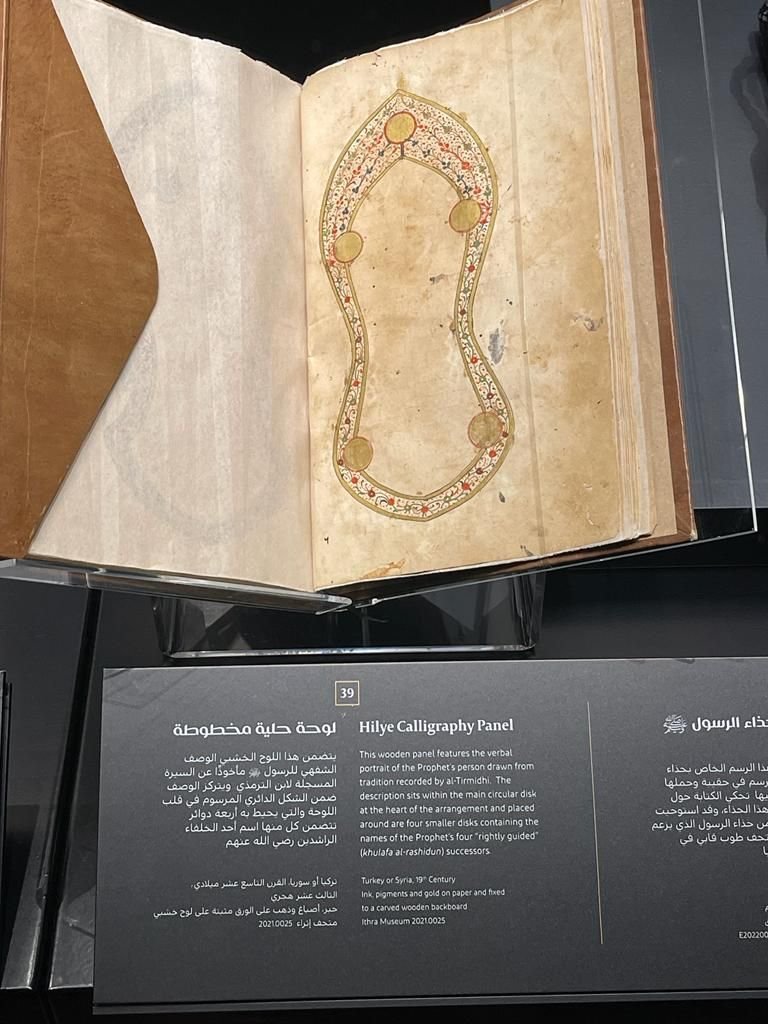 39
لوحة حلية مخطوطة
يتضمن هذا اللوح الخشبي الوصف
الشفهي للرسول ﷺ مأخوذًا عن السيرة
المسجلة لابن الترمذي ويتركز الوصف
ضمن الشكل الدائري المرسوم في قلب
اللوحة والتي يحيط به أربعة دوائر
تتضمن كل منها اسم أحد الخلفاء
الراشدين رضي الله عنهم
تركيا أو سوريا، القرن التاسع عشر ميلادي،
الثالث عشر هجري
حبر، أصباغ وذهب على الورق مثبتة على لوح خشبي
متحف إثراء 2021.0025
Hilye Calligraphy Panel
This wooden panel features the verbal
portrait of the Prophet's person drawn from
tradition recorded by al-Tirmidhi. The
description sits within the main circular disk
at the heart of the arrangement and placed
around are four smaller disks containing the
names of the Prophet's four "rightly guided"
(khulafa al-rashidun) successors.
Turkey or Syria, 19th Century
Ink, pigments and gold on paper and fixed
to a carved wooden backboard
Ithra Museum 2021.0025
حذاء الرسول ﷺ
هذا الرسم الخاص بحذاء
رسم في حقيبة وحملها
تحكي الكتابة حول
هذا الحذاء، وقد استوحيت
من حذاء الرسول الذي يزعم
متحف طوب قابي في
E202200